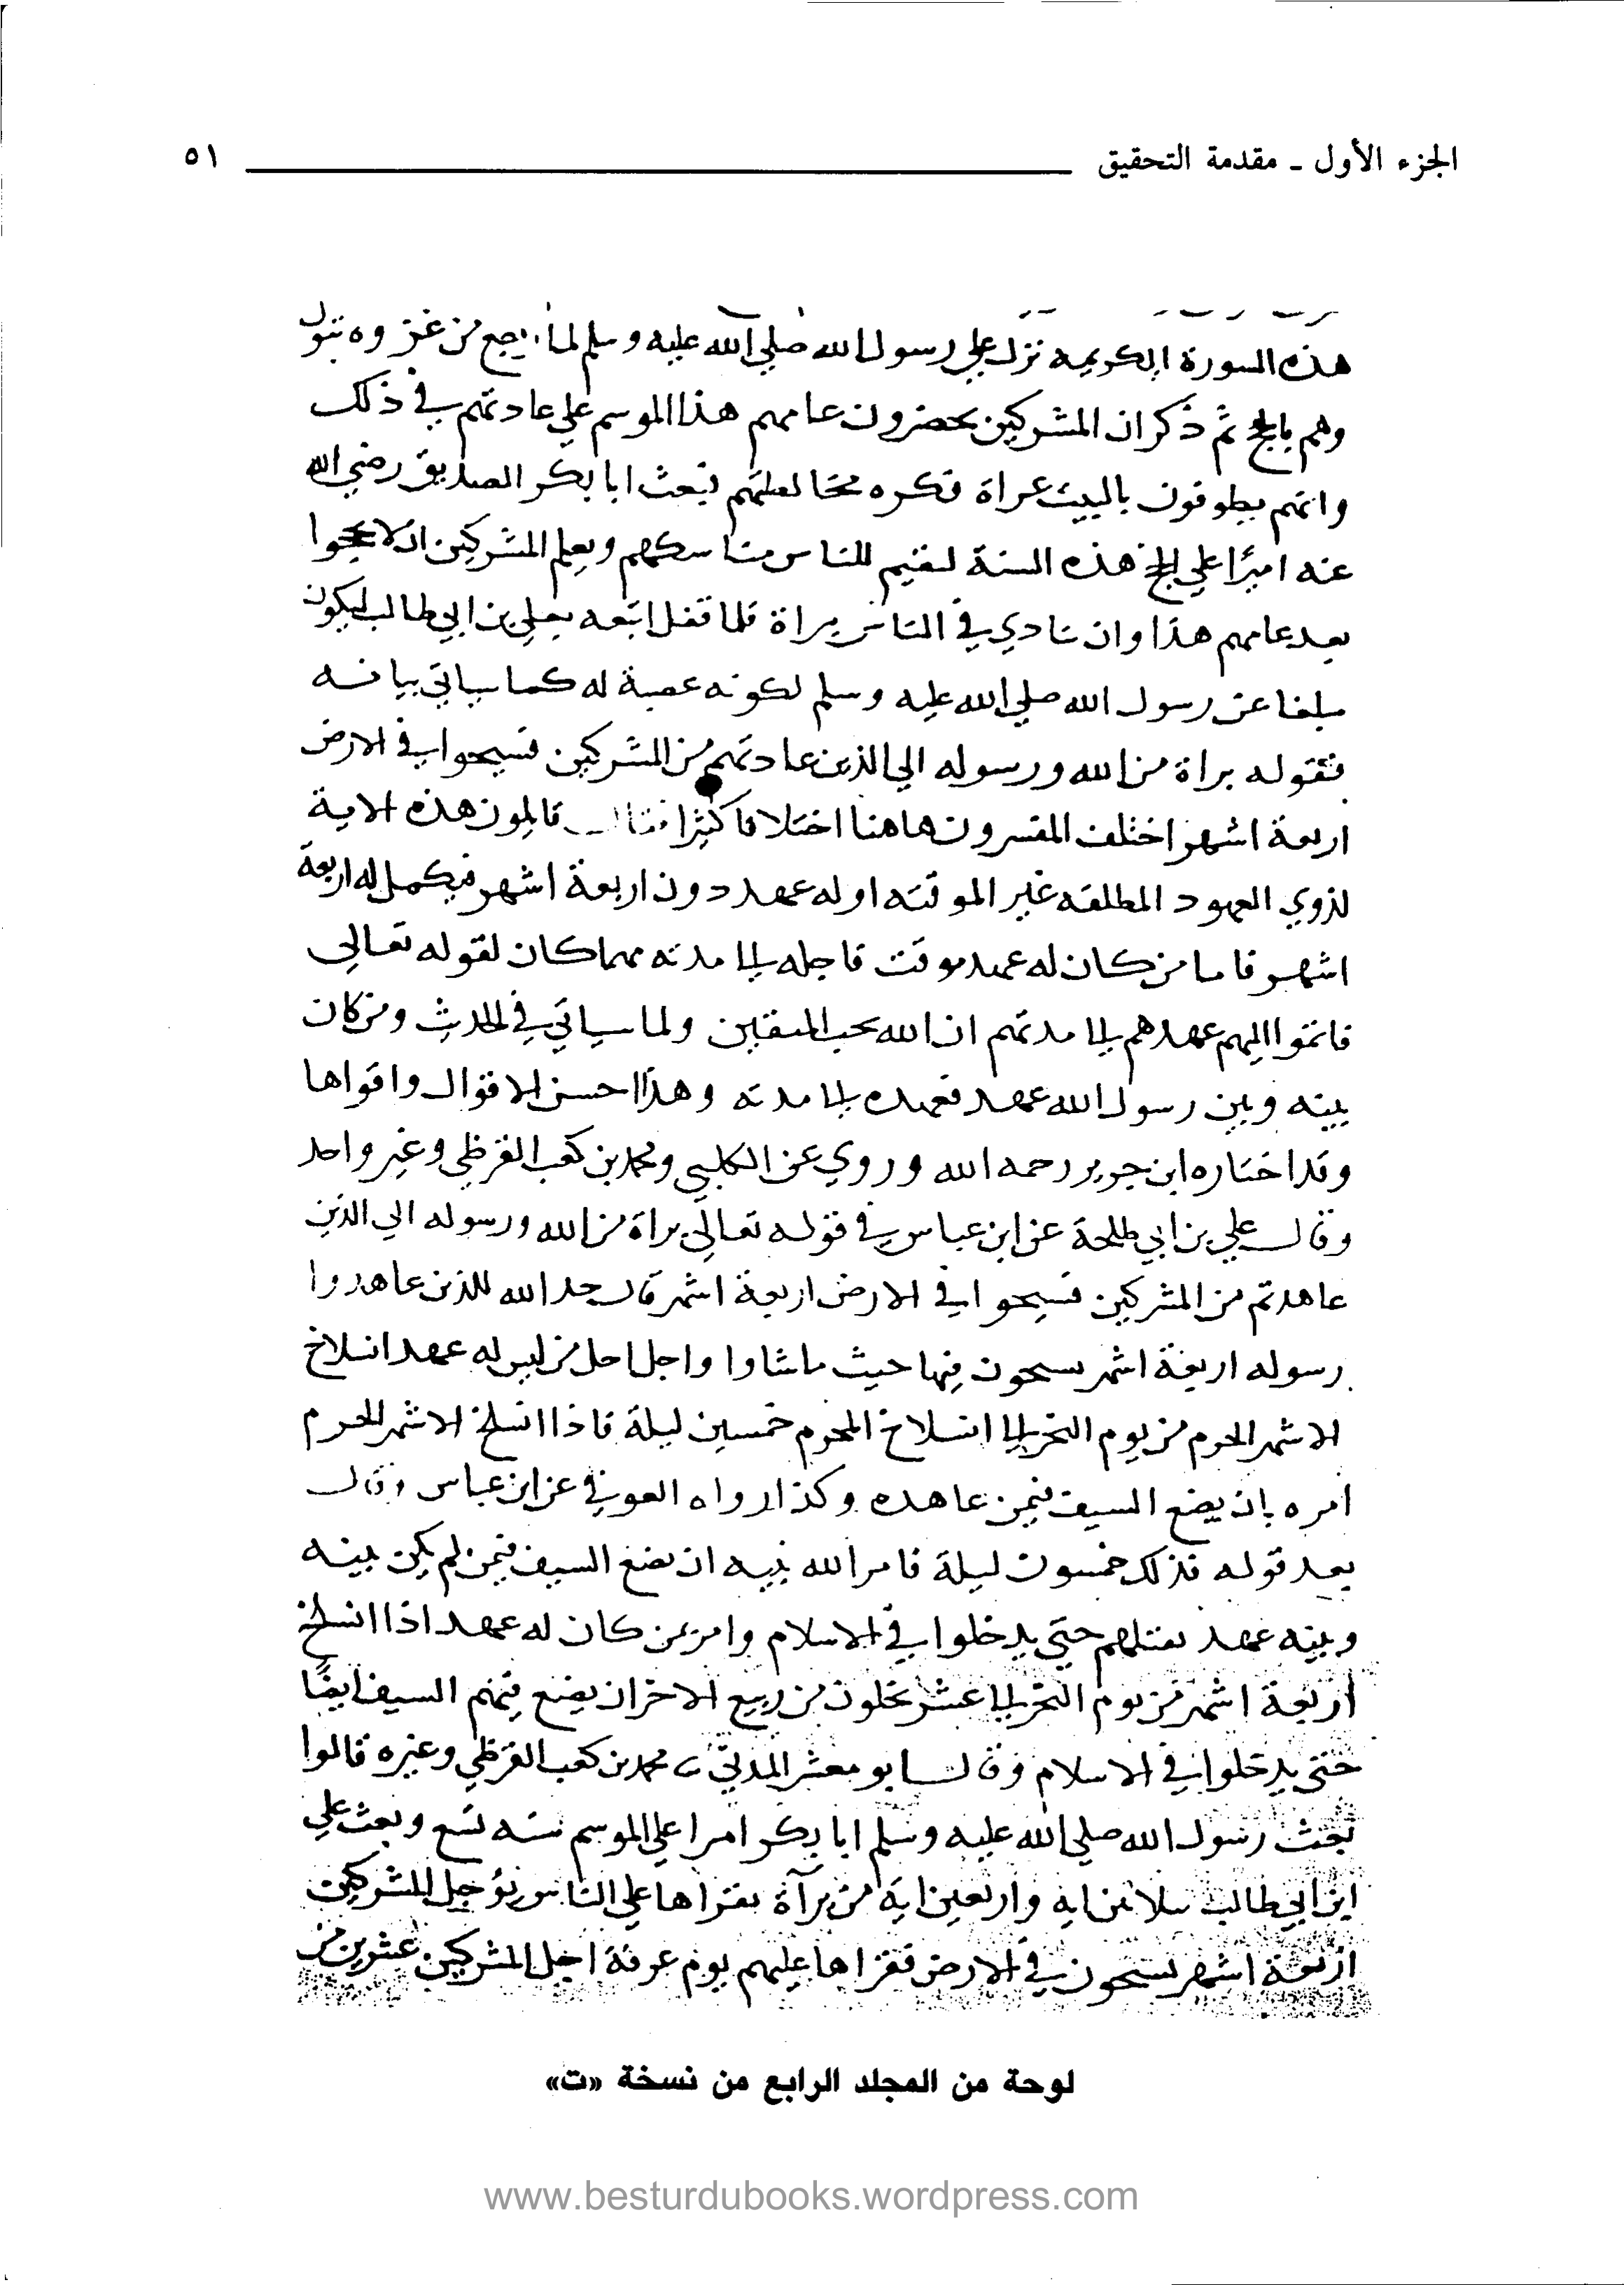 الجزء الأول ـ مقدمة التحقيق ٥١
هذه السورة الكريمه نزل علي رسول الله صلي الله عليه وسلم لما رجع من غزوه تبوك
وهم بالحج ثم ذكر ان المشركين يحضرون عامهم هذا الموسم علي عادتهم في ذلك
وانهم يطوفون بالبيت عراة فكره مخالطتهم فبعث ابا بكر الصديق رضي الله
عنه اميرًا علي الحج هذه السنة ليقيم للناس مناسكهم ويعلم المشركين ان لا يحجوا
بعد عامهم هذا وان ينادي في الناس براة فلما قفل اتبعه بعلي بن ابي طالب ليكون
مبلغا عن رسول الله صلي الله عليه وسلم لكونه عصبة له كما سياتي بيانه
فقوله براة من الله ورسوله الي الذين عادتهم من المشركين فسيحوا في الارض
اربعة اشهر اختلف المفسرون هاهنا اختلافا كثيرا فقال قايلون هذه الاية
لذوي العهود المطلقه غير الموقته او له عهد دون اربعة اشهر فيكمل له اربعة
اشهر فاما من كان له عهد موقت فاجله الى مدته مهما كان لقوله تعالي
فاتموا اليهم عهدهم الى مدتهم ان الله يحب المتقين ولما سياتي في الحديث ومن كان
بينه وبين رسول الله عهد فعهده الى مدته وهذا احسن الاقوال واقواها
وقد اختاره ابن جرير رحمه الله وروي عن الكلبي ومحمد بن كعب القرظي وغير واحد
وقال علي بن ابي طلحة عن ابن عباس في قوله تعالي براة من الله ورسوله الي الذين
عاهدتم من المشركين فسيحوا في الارض اربعة اشهر قال حد الله للذين عاهدوا
رسوله اربعة اشهر يسيحون فيها حيث ماشاوا واجل احل من ليس له عهد انسلاخ
الاشهر الحرم من يوم النحر الى انسلاخ المحرم خمسين ليلة فاذا انسلخ الاشهر الحرم
امره بان يضع السيف فيمن عاهده وكذا رواه العوفي عن ابن عباس وقال
بعد قوله فذلك خمسون ليلة فامر الله نبيه ان يضع السيف فيمن لم يكن بينه
وبينه عهد يقتلهم حتي يدخلوا في الاسلام وامر بمن كان له عهد اذا انسلخ
اربعة اشهر من يوم النحر الى عشر يخلون من ربيع الاخر ان يضع فيهم السيف ايضًا
حتى يدخلوا في الاسلام وقال ابو معشر المدني محمد بن كعب القرظي وغيره قالوا
بعث رسول الله صلي الله عليه وسلم ابا بكر امرا علي الموسم سنه تسع وبعث علي
ابن ابي طالب بثلاثين ايه واربعين ايه من برآة يقراها علي الناس يؤجل للمشركين
اربعة اشهر يسيحون في الارض فقراها عليهم يوم عرفة اجل المشركين عشرين من
لوحة من المجلد الرابع من نسخة «ت»
www.besturdubooks.wordpress.com